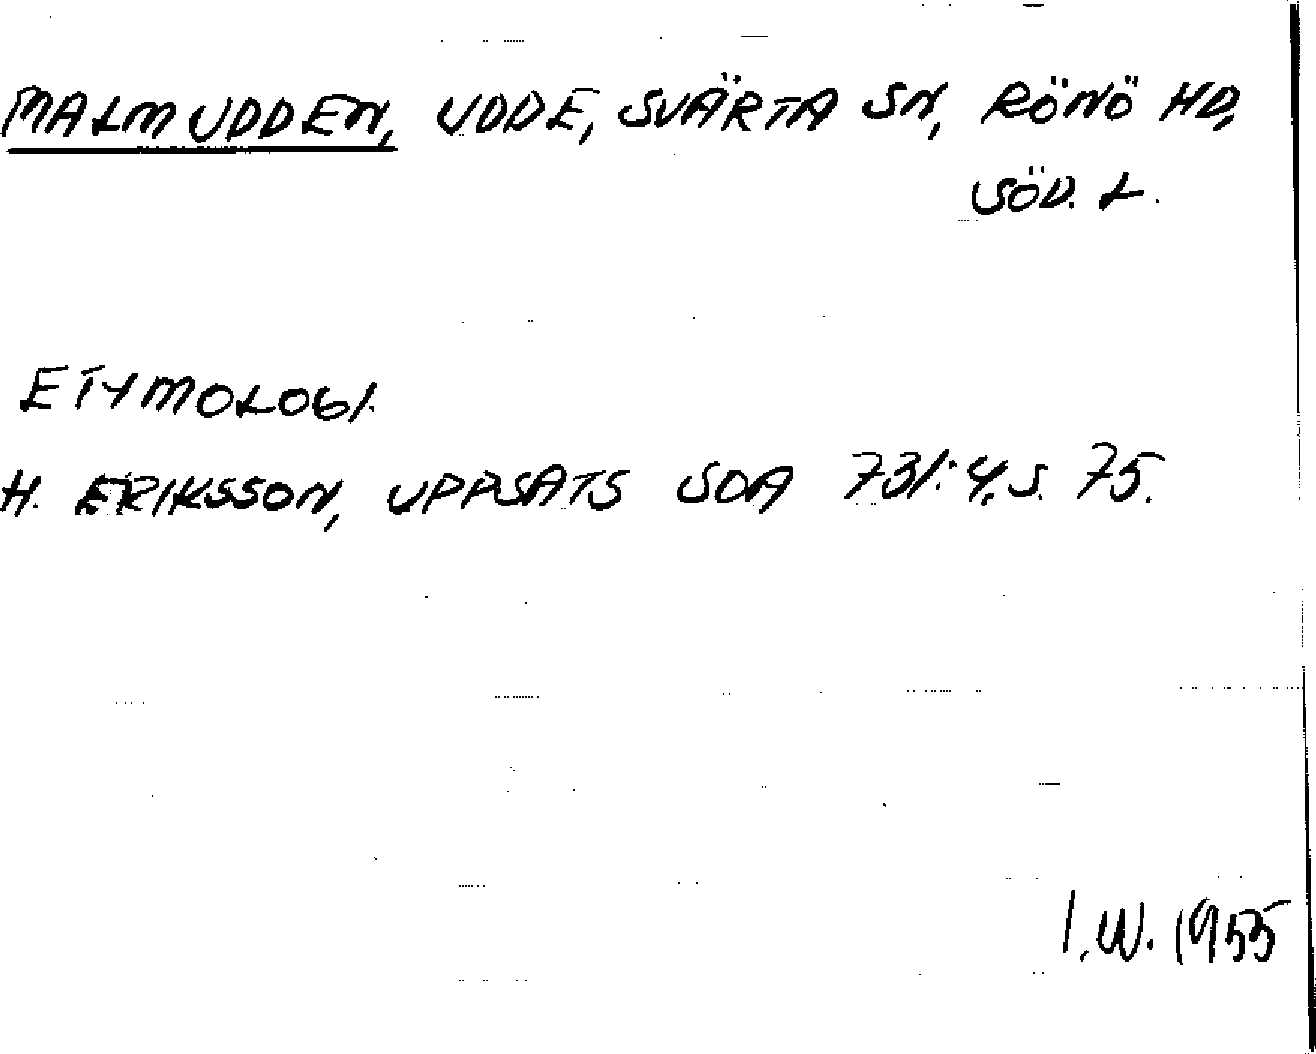 MALMUDDEN, UDDE, SVÄRTA SN, RÖNÖ HD,
SÖD. L.
ETYMOLOGI.
H. ERIKSSON, UPPSATS SOA 731:4, S. 75.
I.W. 1955